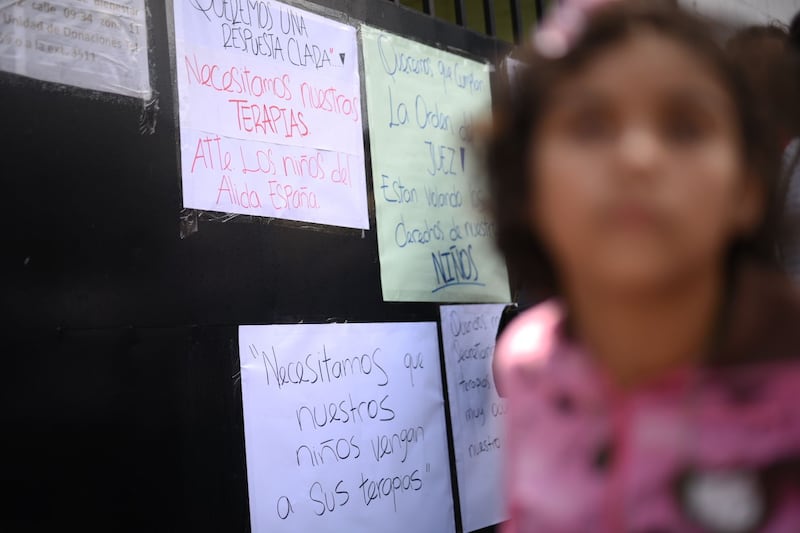 z calle 09:34 zona 11
Unidad de Donaciones
o a la ext. 3511
QUEREMOS UNA
RESPUESTA CLARA"
Necesitamos nuestras
TERAPIAS
Atte Los niños del
Alida España
Queremos que Cumplan
La Orden
JUEZ
Estan Violando
derechos de nuestros
NIÑOS
"Necesitamos que
nuestros
niños vengan
a sus terapias"
Queremos
terapias
muy
nuestro